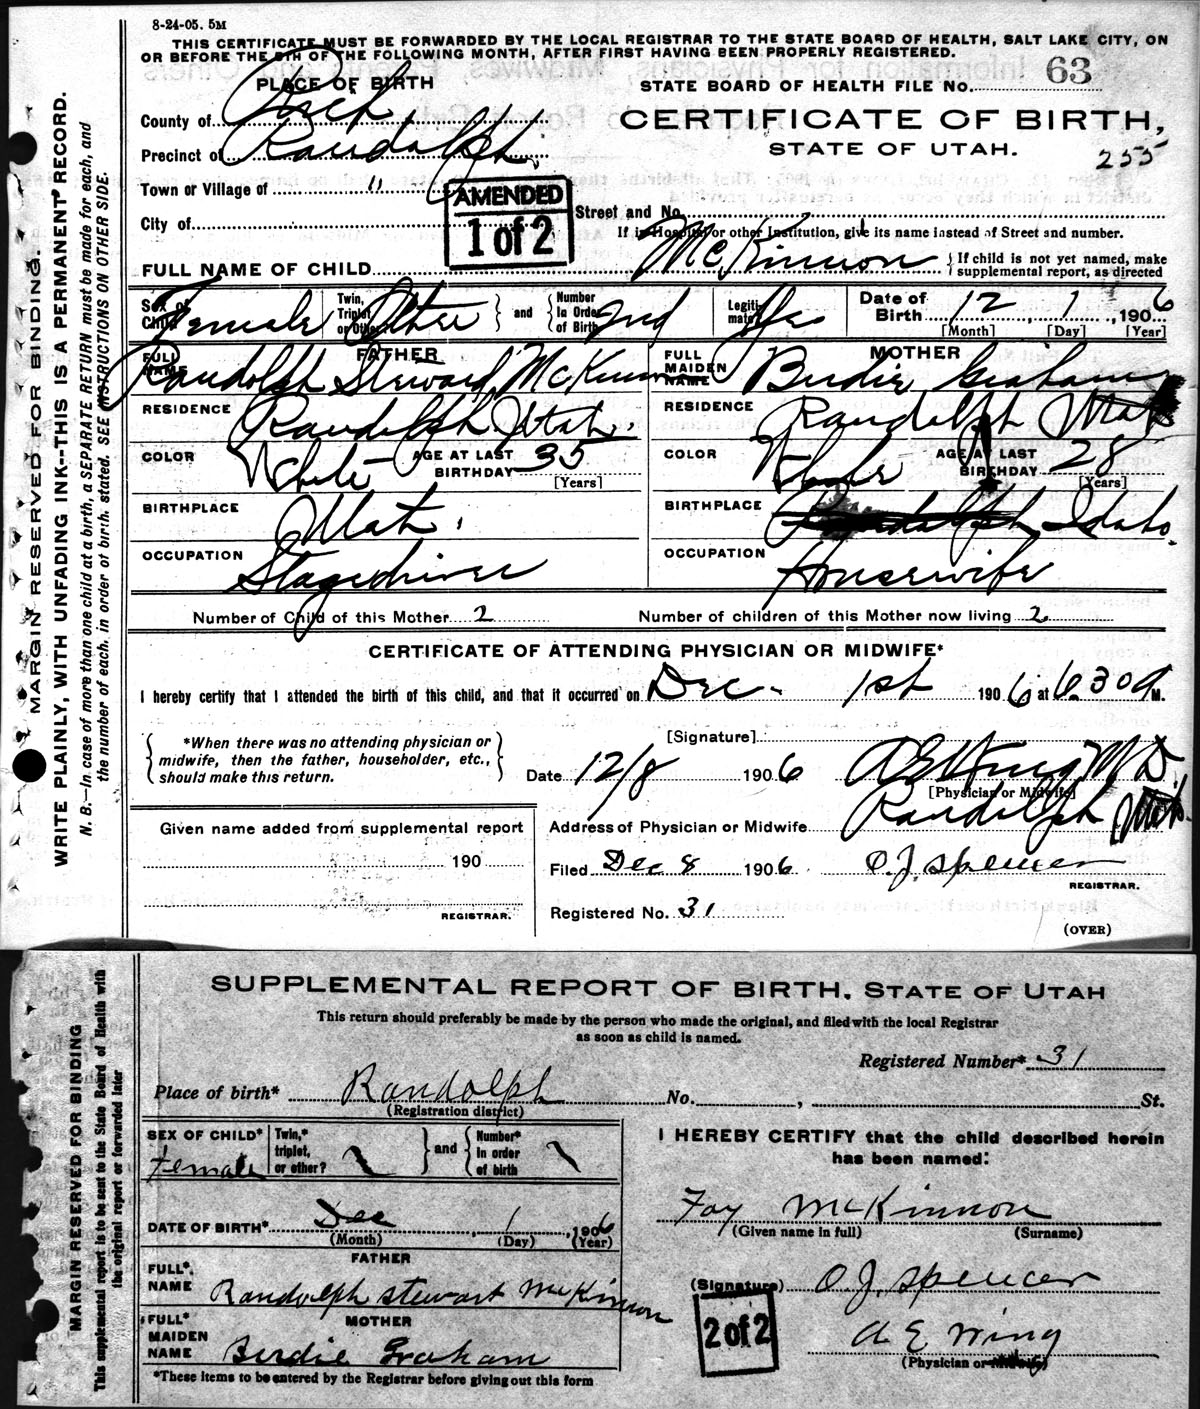 8-24-05. 5M
THIS CERTIFICATE MUST BE FORWARDED BY THE LOCAL REGISTRAR TO THE STATE BOARD OF HEALTH, SALT LAKE CITY, ON
OR BEFORE THE 5TH OF THE FOLLOWING MONTH, AFTER FIRST HAVING BEEN PROPERLY REGISTERED.
PLACE OF BIRTH
STATE BOARD OF HEALTH FILE No. 63
County of Rich
CERTIFICATE OF BIRTH,
Precinct of Randolph
STATE OF UTAH.
255
Town or Village of "
AMENDED
1 of 2
City of
Street and No.
If in Hospital or other Institution, give its name instead of Street and number.
FULL NAME OF CHILD McKinnon { If child is not yet named, make supplemental report, as directed
Sex of Child Female Twin, Triplet or Other Other } and { Number In Order of Birth 2nd Legitimate Yes Date of Birth 12 1, 1906
[Month] [Day] [Year]
FATHER
FULL NAME Randolph Steward McKinnon
RESIDENCE Randolph Utah
COLOR White AGE AT LAST BIRTHDAY 35 [Years]
BIRTHPLACE Utah.
OCCUPATION Stagedriver
MOTHER
FULL MAIDEN NAME Birdie Graham
RESIDENCE Randolph Utah
COLOR White AGE AT LAST BIRTHDAY 28 [Years]
BIRTHPLACE Randolph Idaho.
OCCUPATION Housewife
Number of Child of this Mother 2 Number of children of this Mother now living 2
CERTIFICATE OF ATTENDING PHYSICIAN OR MIDWIFE*
I hereby certify that I attended the birth of this child, and that it occurred on Dec. 1st 1906 at 6.30 a M.
{ *When there was no attending physician or
midwife, then the father, householder, etc.,
should make this return. }
[Signature]
Date 12/8 1906 A E Wing M D
[Physician or Midwife]
Address of Physician or Midwife Randolph Utah
Given name added from supplemental report
190
REGISTRAR.
Filed Dec 8 1906 O. J. Spencer
REGISTRAR.
Registered No. 31
(OVER)
MARGIN RESERVED FOR BINDING.
WRITE PLAINLY, WITH UNFADING INK--THIS IS A PERMANENT RECORD.
N. B.—In case of more than one child at a birth, a SEPARATE RETURN must be made for each, and
the number of each, in order of birth, stated. SEE INSTRUCTIONS ON OTHER SIDE.
SUPPLEMENTAL REPORT OF BIRTH, STATE OF UTAH
This return should preferably be made by the person who made the original, and filed with the local Registrar
as soon as child is named.
Registered Number* 31
Place of birth* Randolph No. , St.
(Registration district)
SEX OF CHILD* Female Twin,* triplet, or other? } and { Number* in order of birth
DATE OF BIRTH* Dec 1, 1906
(Month) (Day) (Year)
FATHER
FULL* NAME Randolph Stewart McKinnon
MOTHER
FULL* MAIDEN NAME Birdie Graham
*These items to be entered by the Registrar before giving out this form
I HEREBY CERTIFY that the child described herein
has been named:
Fay McKinnon
(Given name in full) (Surname)
(Signature) O. J. Spencer
2 of 2
A E Wing
(Physician or Midwife)
MARGIN RESERVED FOR BINDING
This supplemental report is to be sent to the State Board of Health with
the original report or forwarded later